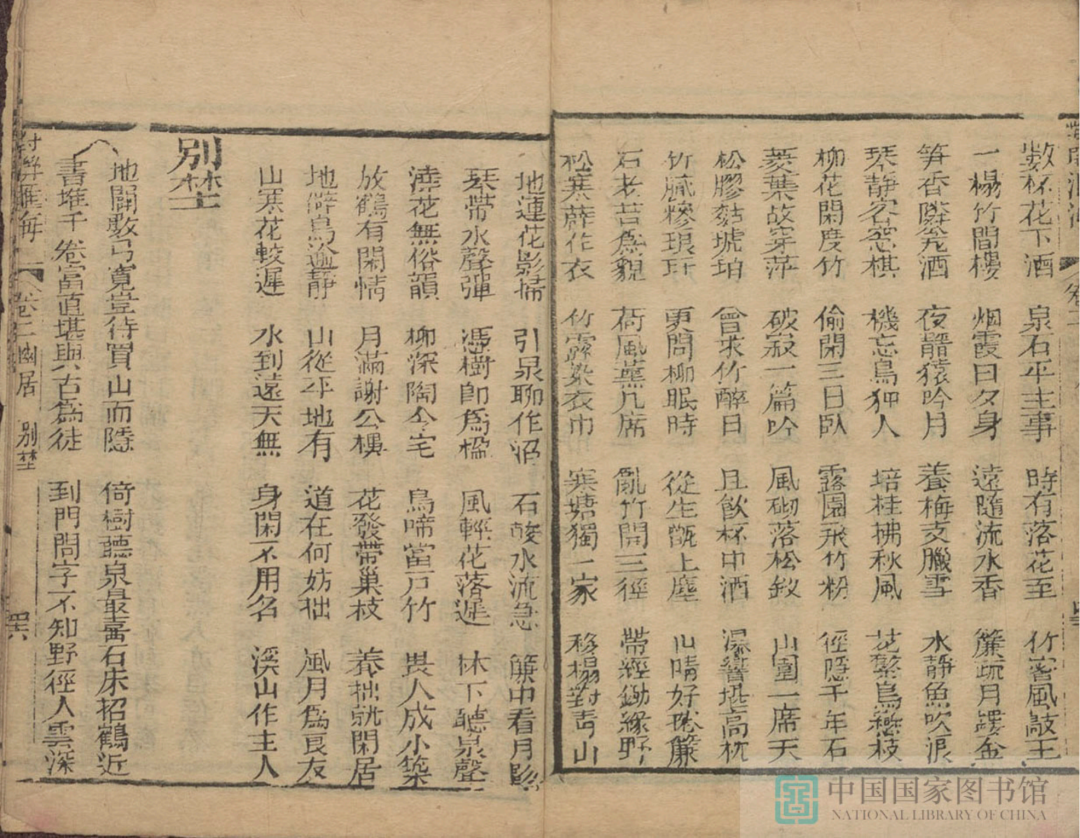 數杯花下酒 泉石平主事 時有落花至 竹窗風敲玉
一榻竹間樓 烟霞日夕身 遠隨流水香 簾疏月鏤金
笋香隣瓮酒 夜静猿吟月 養梅支臘雪 水静魚吹浪
琴静客 棋 機忘鳥狎人 培桂拂秋風 花繁鳥戀枝
柳花閑度竹 偷閑三日臥 露園飛竹粉 徑隱千年石
菱葉故穿萍 破寂一篇吟 風砌落松釵 山圍一席天
松膠黏琥珀 曾求竹醉日 且飲杯中酒 瀑響 高枕
竹膩糝琅玕 更問柳眠時 從生甑上塵 山晴好捲簾
石老苔為貌 荷風薰几席 亂竹開三徑 帶經鋤綠野
松寒薜作衣 竹露染衣巾 寒塘獨一家 移榻對青山
地蓮花影掃 引泉聊作沼 石酸水流急 簾中看月影
琴帶水聲彈 憑樹即為楹 風輕花落遲 林下聽泉聲
花無俗韻 柳深陶令宅 鳥啼當戶竹 畏人成小築
放鶴有閑情 月滿謝公樓 花發帶巢枝 養拙就閑居
地僻鳥逾静 山從平地有 道在何妨拙 風月為良友
山寒花較遲 水到遠天無 身閑不用名 溪山作主人
別埜
地闢數弓寬豈待買山而隱 倚樹聽泉最喜石床招鶴近
書堆千卷富直堪與古為徒 到門問字不知野徑人雲深
卷二幽居 別埜
中国国家图书馆
NATIONAL LIBRARY OF CHINA